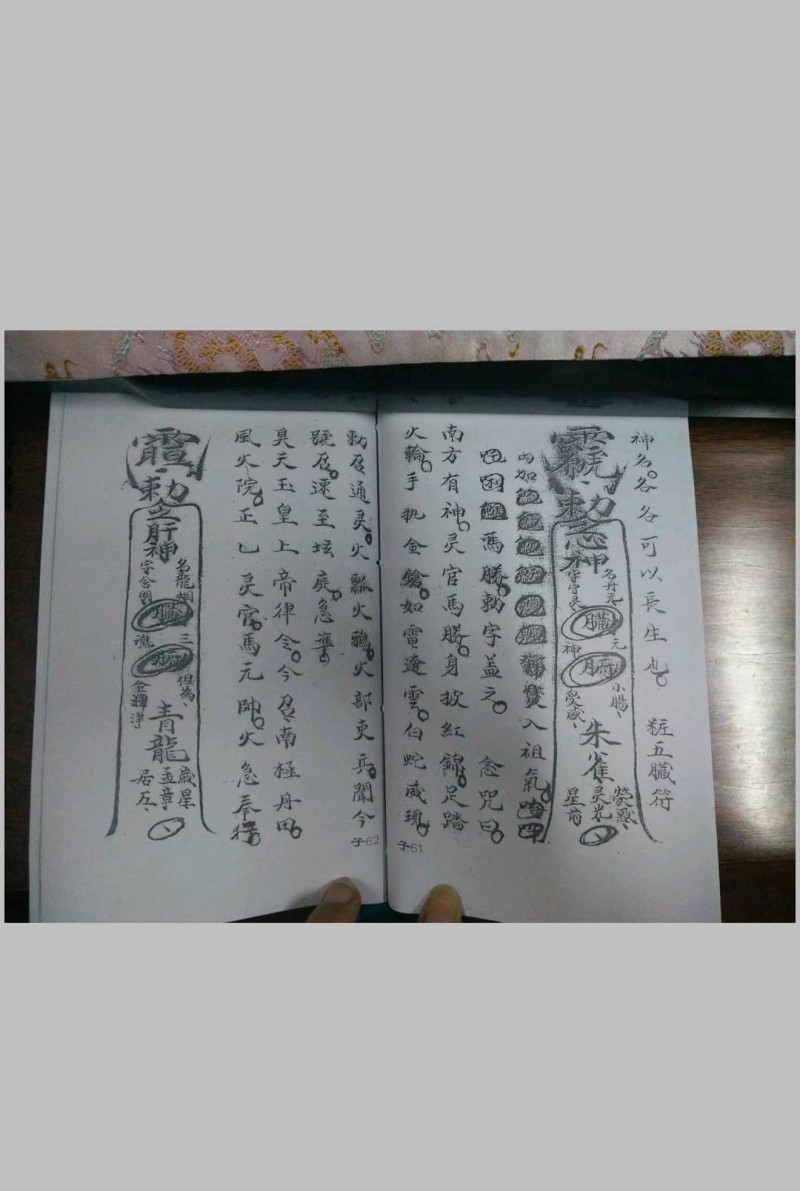 神名。各各可以長生也。 粧五臟符
勅心神
名丹元、
字守灵
臟
腑
元
神
小腸、
受盛、
朱雀
熒惑、
灵光、
星前
变入祖氣。
馬勝。勅字盖之。 念咒曰。
南方有神。灵官馬勝。身披紅錦。足踏
火輪。手执金鎗。如雷遶雲。白蛇威現。
子-61
勅召通灵。火瓢火鴉。火部吏兵。聞今
號召。速至坛庭。急準。
昊天玉皇上帝律令。今召南極丹田。
風火院。正乙灵官。馬元帥。火急奉行。
子-62
勅
肝神
名龍烟
字含明
臟
腑
三
魂
但為、
金澤洋
青龍
歲星
孟章
居左、